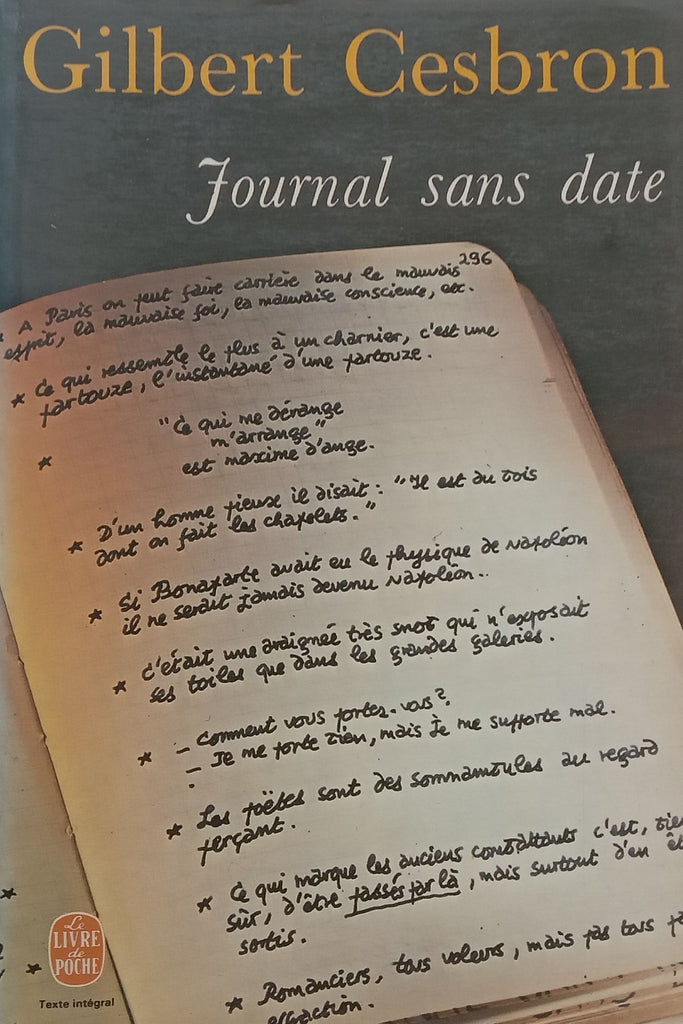 Gilbert Cesbron
Journal sans date
296
* A Paris on peut faire carrière dans le mauvais
esprit, la mauvaise foi, la mauvaise conscience, etc.
* Ce qui ressemble le plus à un charnier, c'est une
partouze, l'instantané d'une partouze.
"Ce qui me dérange
m'arrange"
* est maxime d'ange.
* D'un homme pieux il disait : "Il est du bois
dont on fait les chapelets."
* Si Bonaparte avait eu le physique de Napoléon
il ne serait jamais devenu Napoléon..
* C'était une araignée très snob qui n'exposait
ses toiles que dans les grandes galeries.
* – Comment vous portez-vous?
– Je me porte bien, mais je me supporte mal.
* Les poëtes sont des somnambules au regard
perçant.
* Ce qui marque les anciens combattants c'est, bien
sûr, d'être passés par là, mais surtout d'en
sortis.
* Romanciers, tous voleurs, mais pas tous
effraction.
Le
LIVRE
de
POCHE
Texte intégral